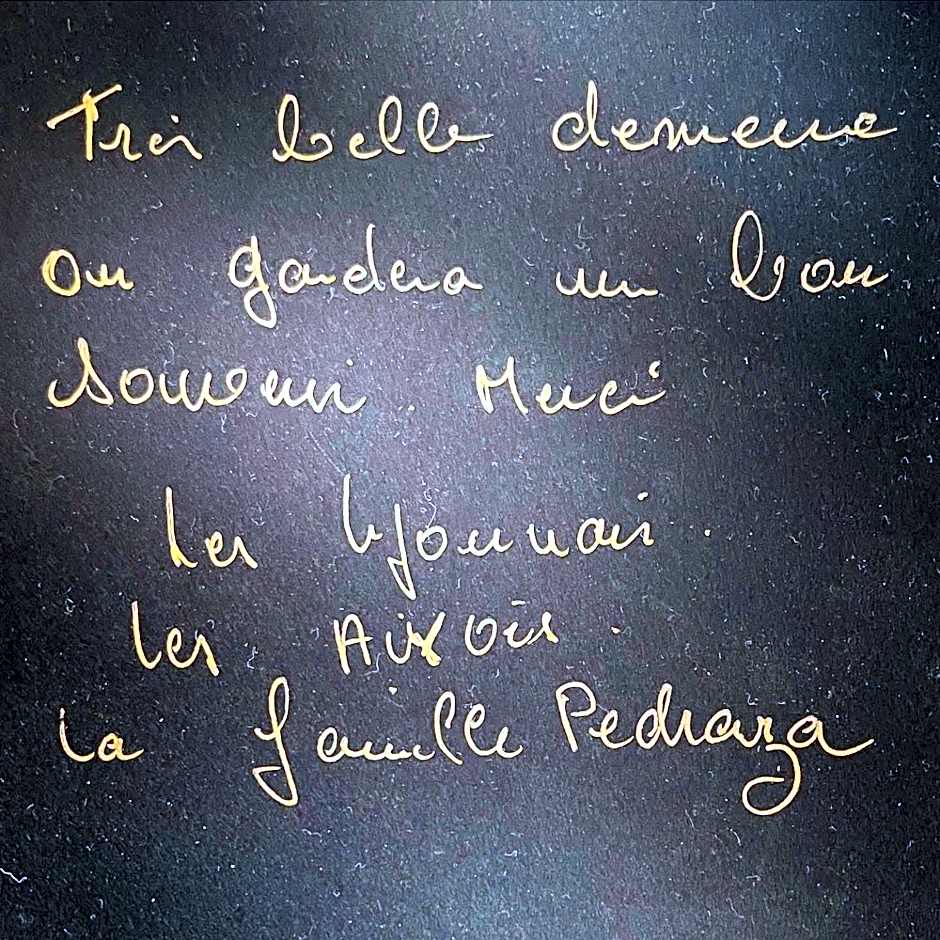 Très belle demeure
on gardera un bon
souvenir. Merci
Les Lyonnais.
Les Aixois.
La famille Pedraza